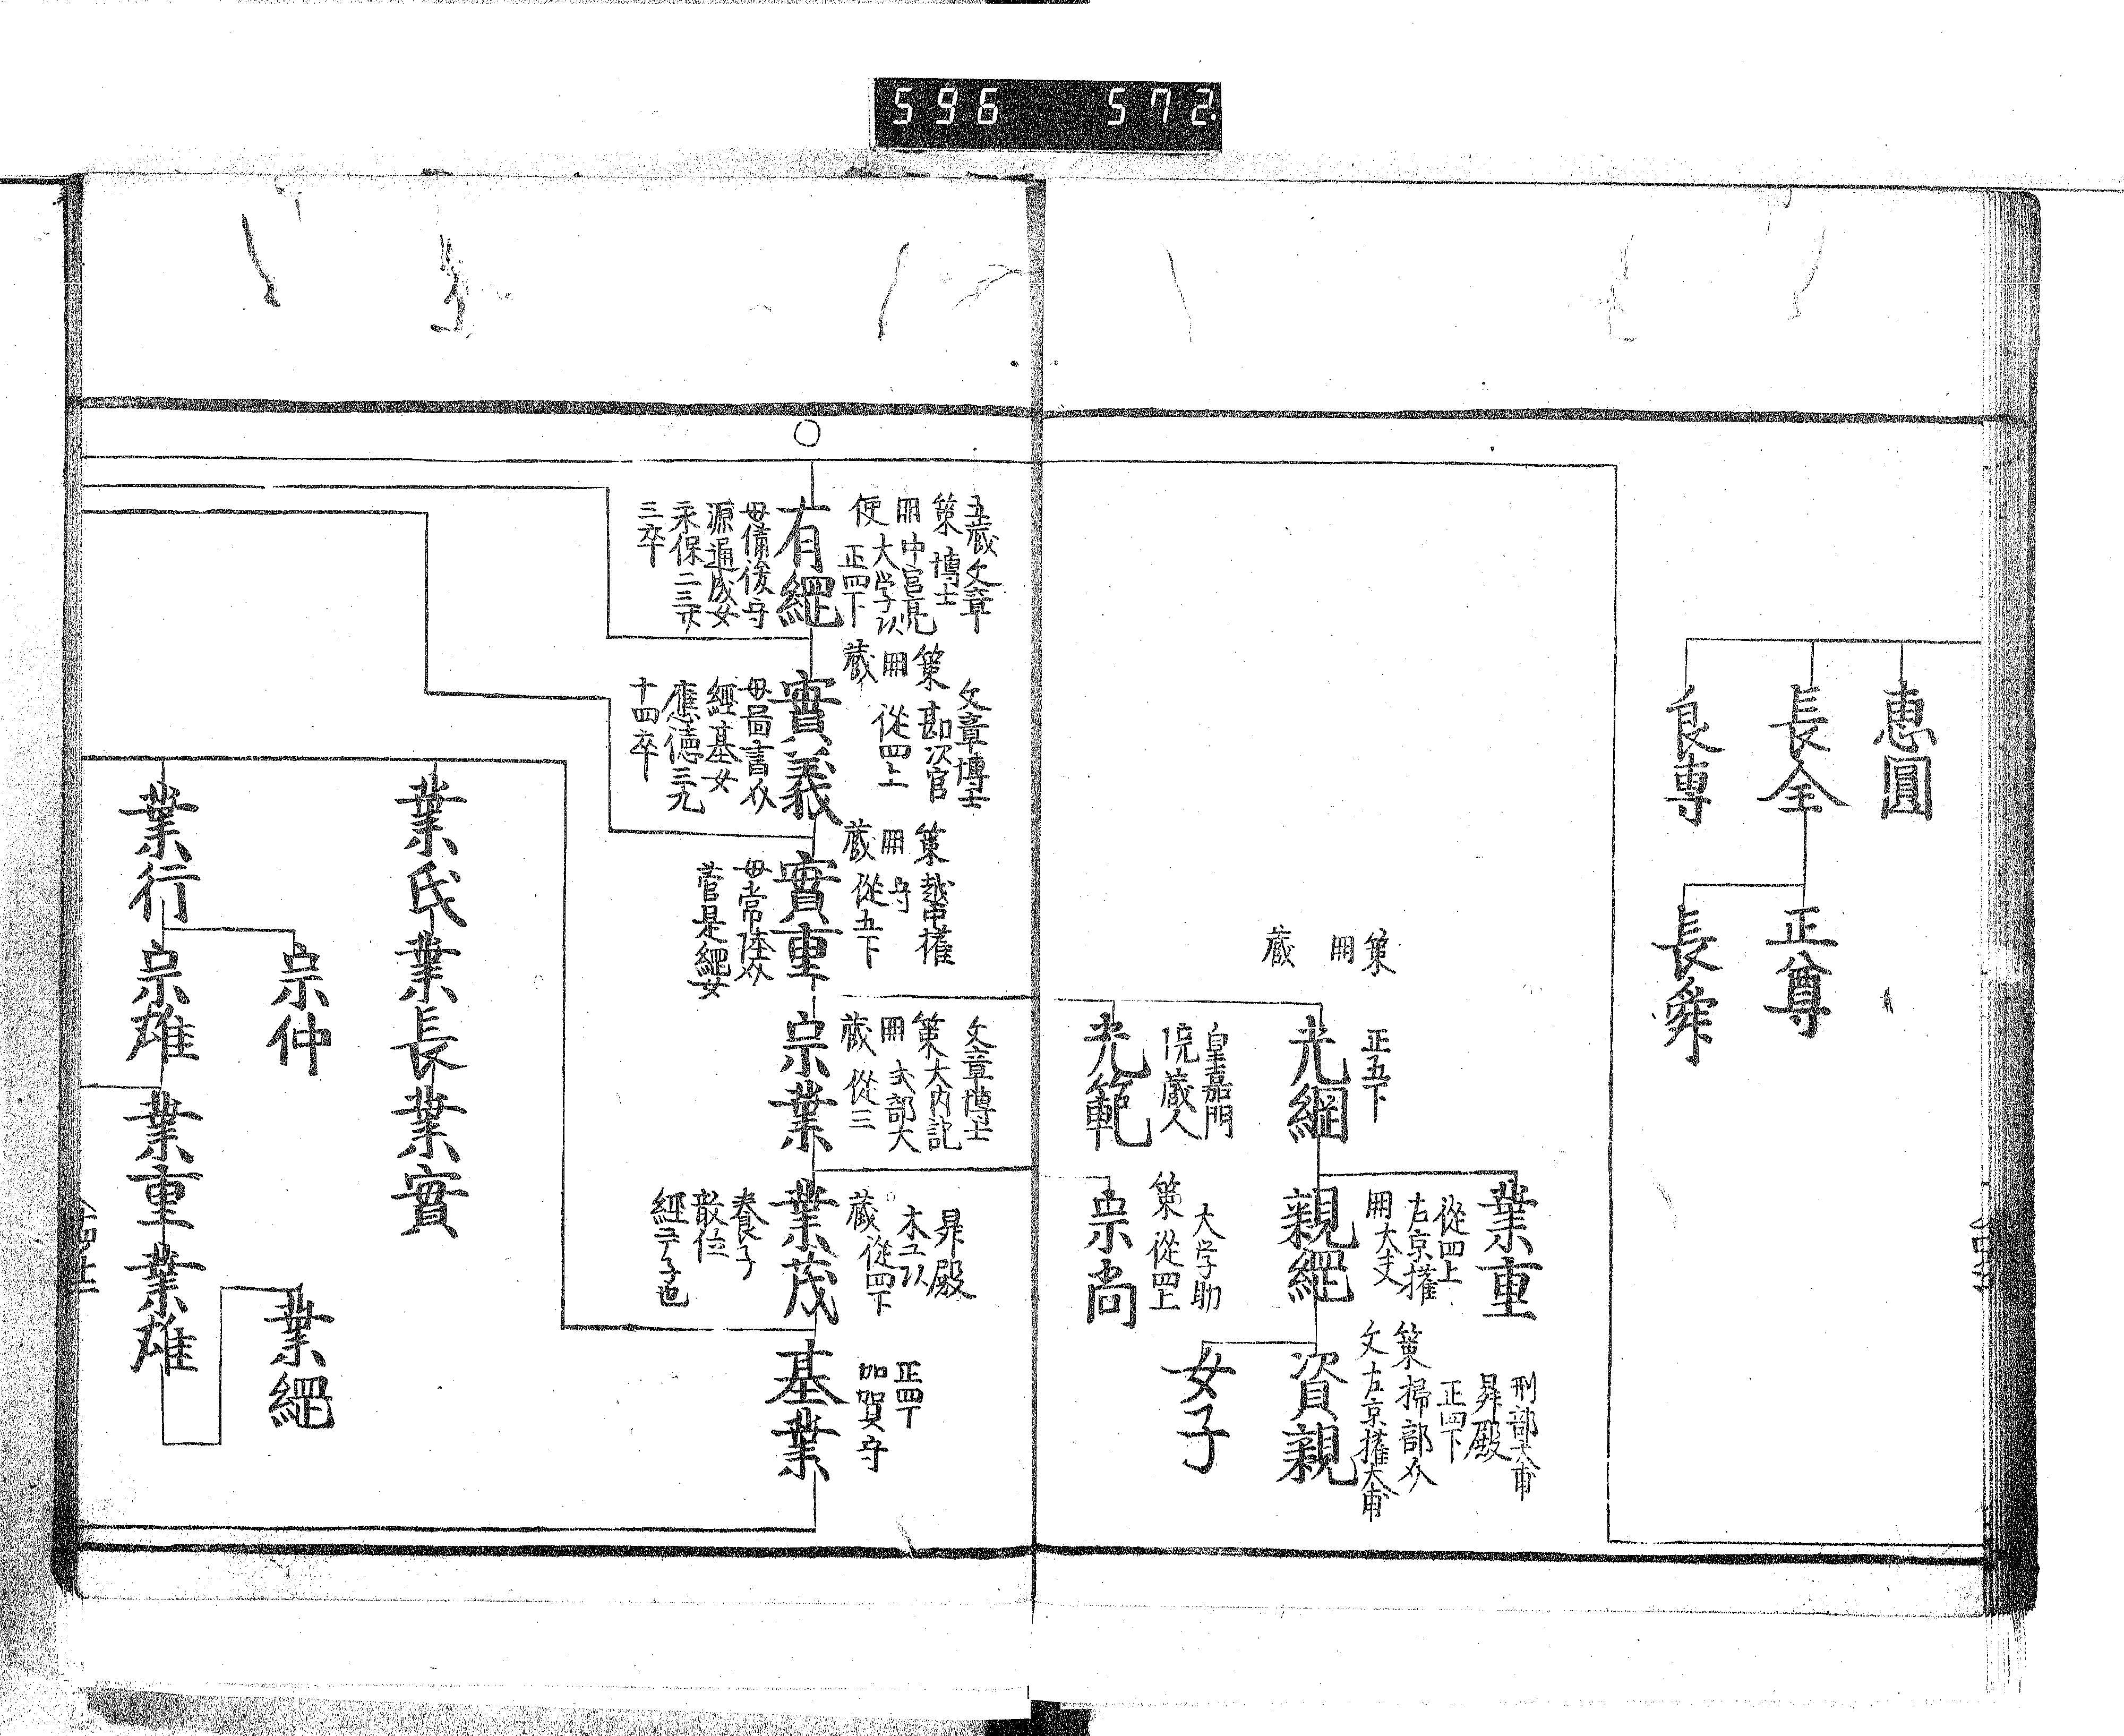 596 572
惠圓
長全
良専
正尊
長舜
策
冊
蔵
正五下
光綱
皇嘉門
院蔵人
光範
業重
從四上
右京權
冊大夫
親經
大学助
策 從四上
宗尚
刑部大甫
昇殿
正四下
策掃部介
文右京權大甫
資親
女子
五蔵文章
策博士
冊中宮亮
使大学以
正四下
有經
母備後守
源通成女
永保二三六
三卒
文章博士
策勘次官
冊從四上
蔵
實義
母圖書介
經基女
應德三九
十四卒
策越中權
冊守
蔵從五下
實重
母常陸介
菅是經女
文章博士
策大内記
冊式部大
蔵從三
宗業
昇殿
木工以
蔵從四下
業茂
養子
散位
經子也
正四下
加賀守
基業
業氏
業長
業實
業行
宗仲
宗雄
業重
業雄
業經